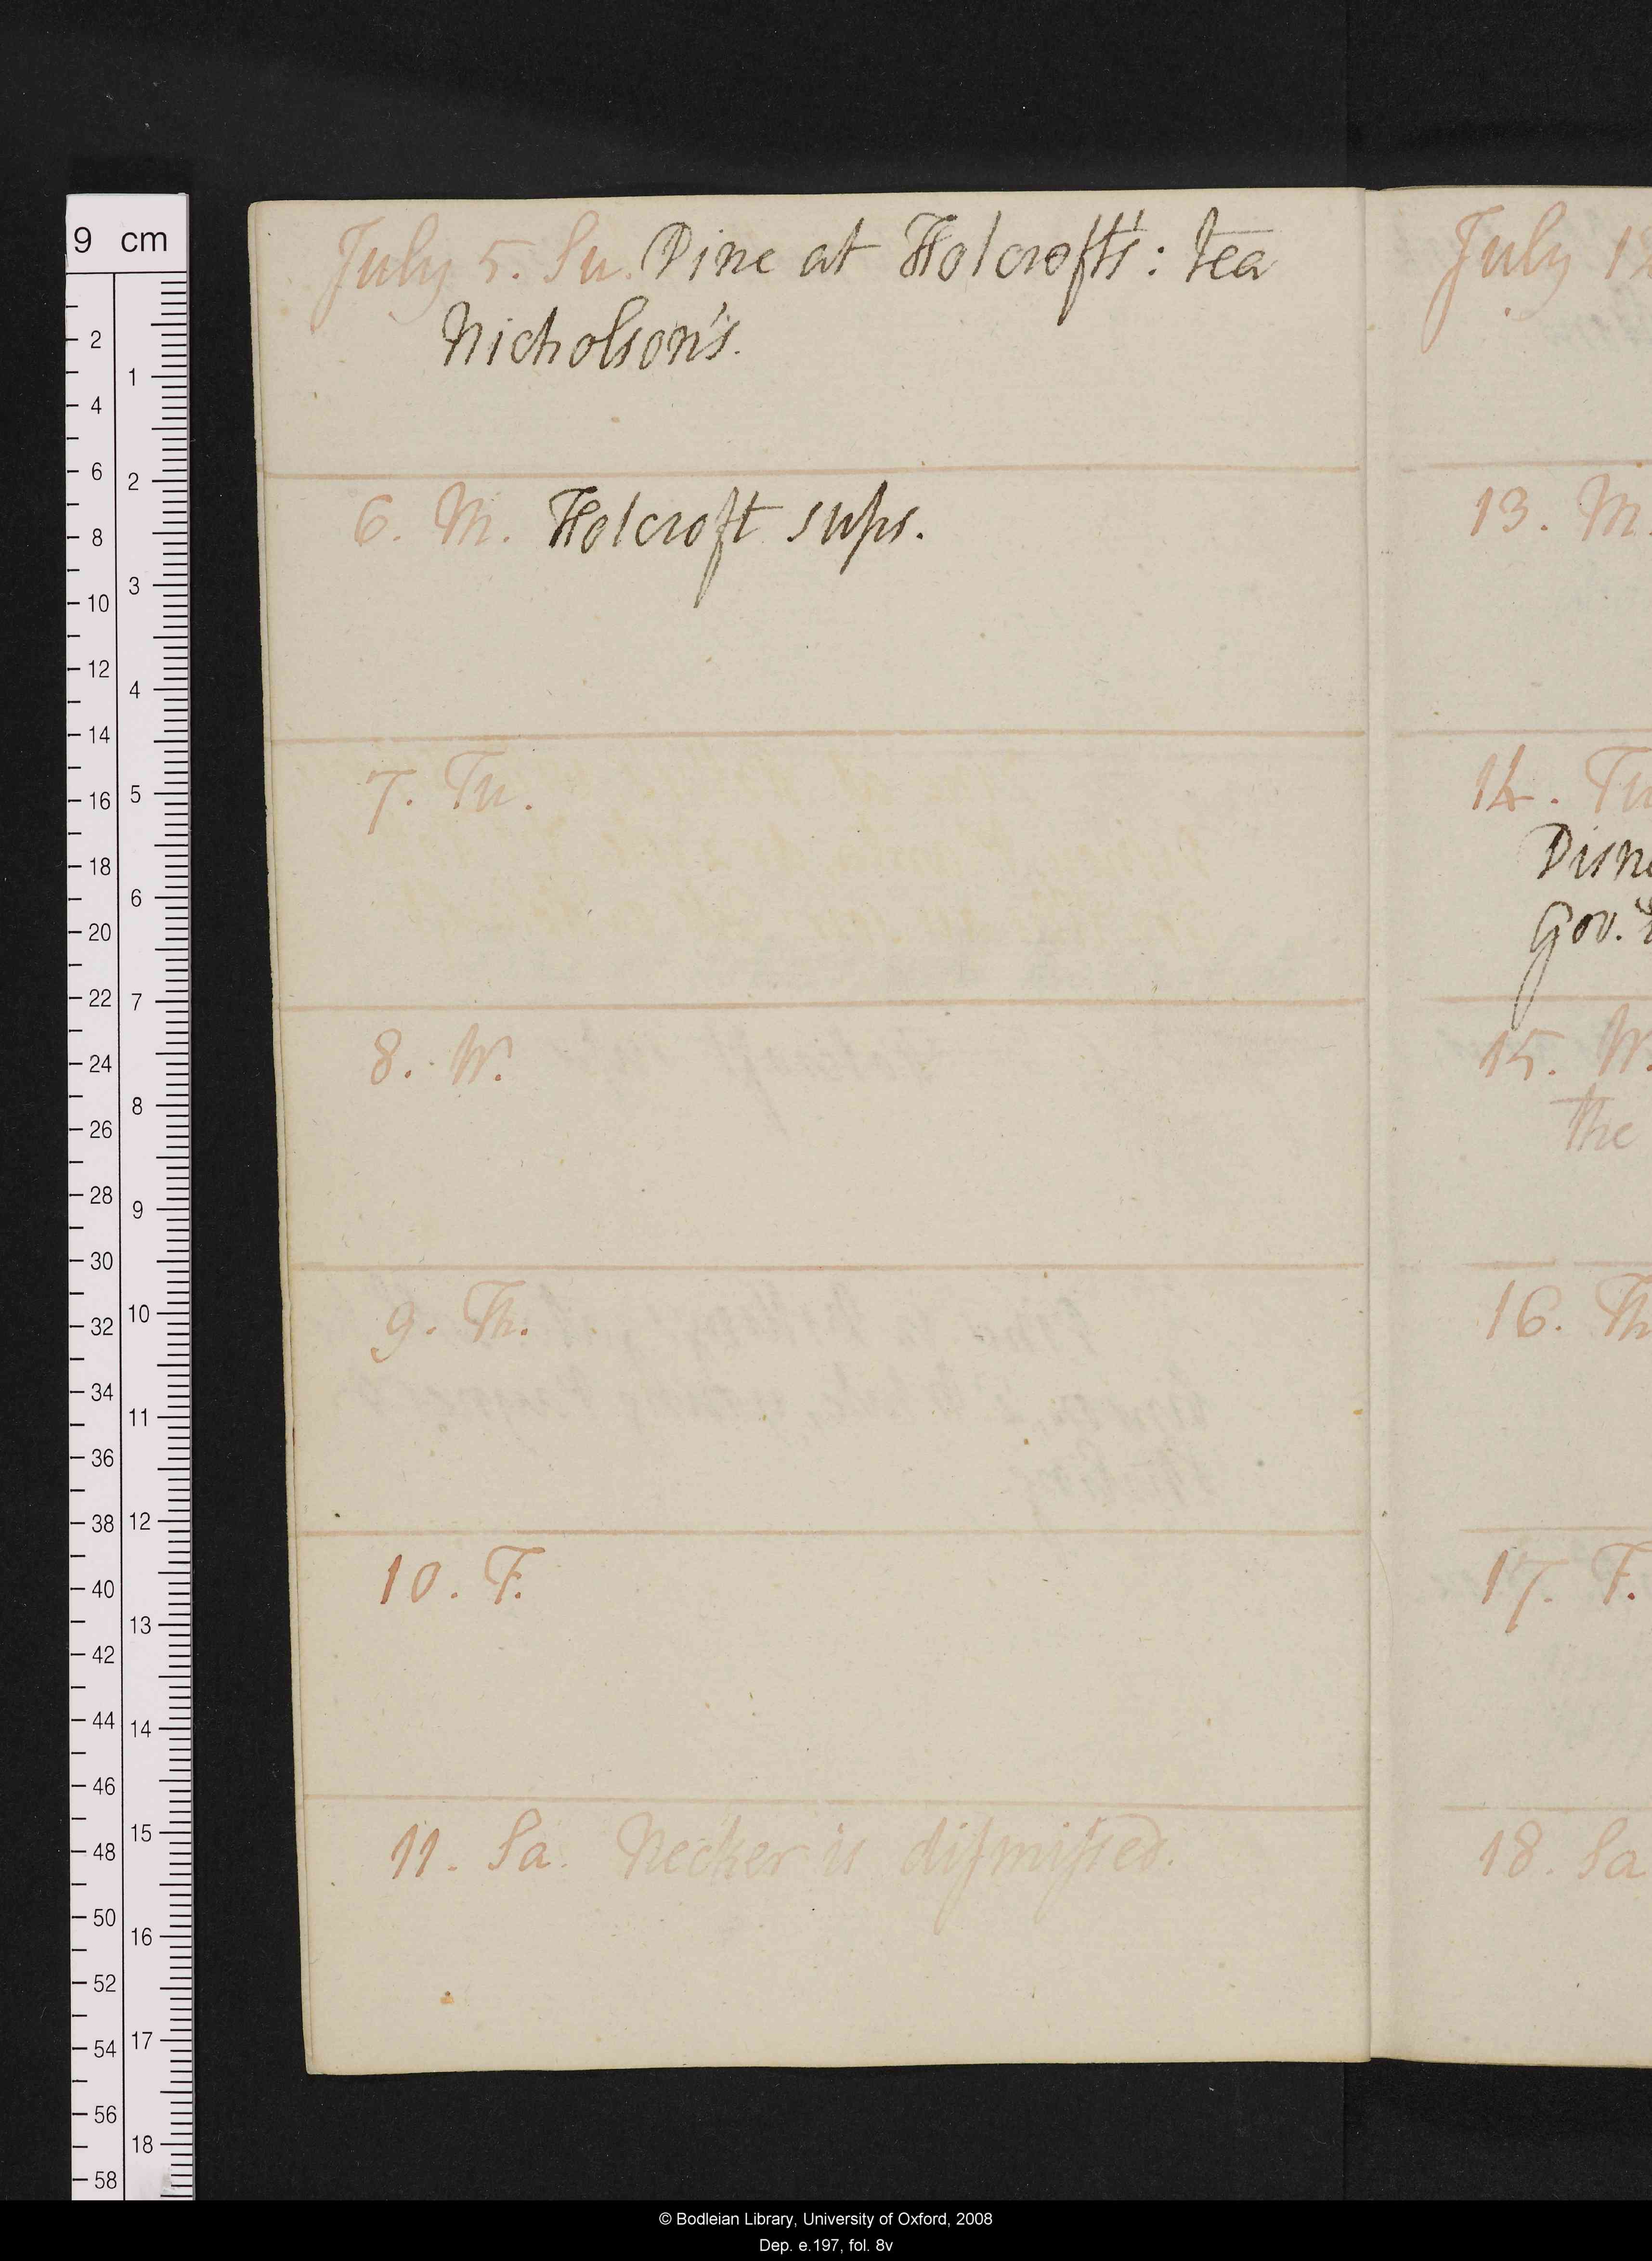 July 5. Su. Dine at Holcroft's: tea
Nicholson's.
6. M. Holcroft sups.
7. Tu.
8. W.
9. Th.
10. F.
11. Sa. Necker is diſmiſsed.
July
13. M.
14. Tu
Gov.
15. W.
the
16. Th
17. F.
18. Sa
9 cm
2
4
6
8
10
12
14
16
18
20
22
24
26
28
30
32
34
36
38
40
42
44
46
48
50
52
54
56
58
1
2
3
4
5
6
7
8
9
10
11
12
13
14
15
16
17
18
© Bodleian Library, University of Oxford, 2008
Dep. e.197, fol. 8v